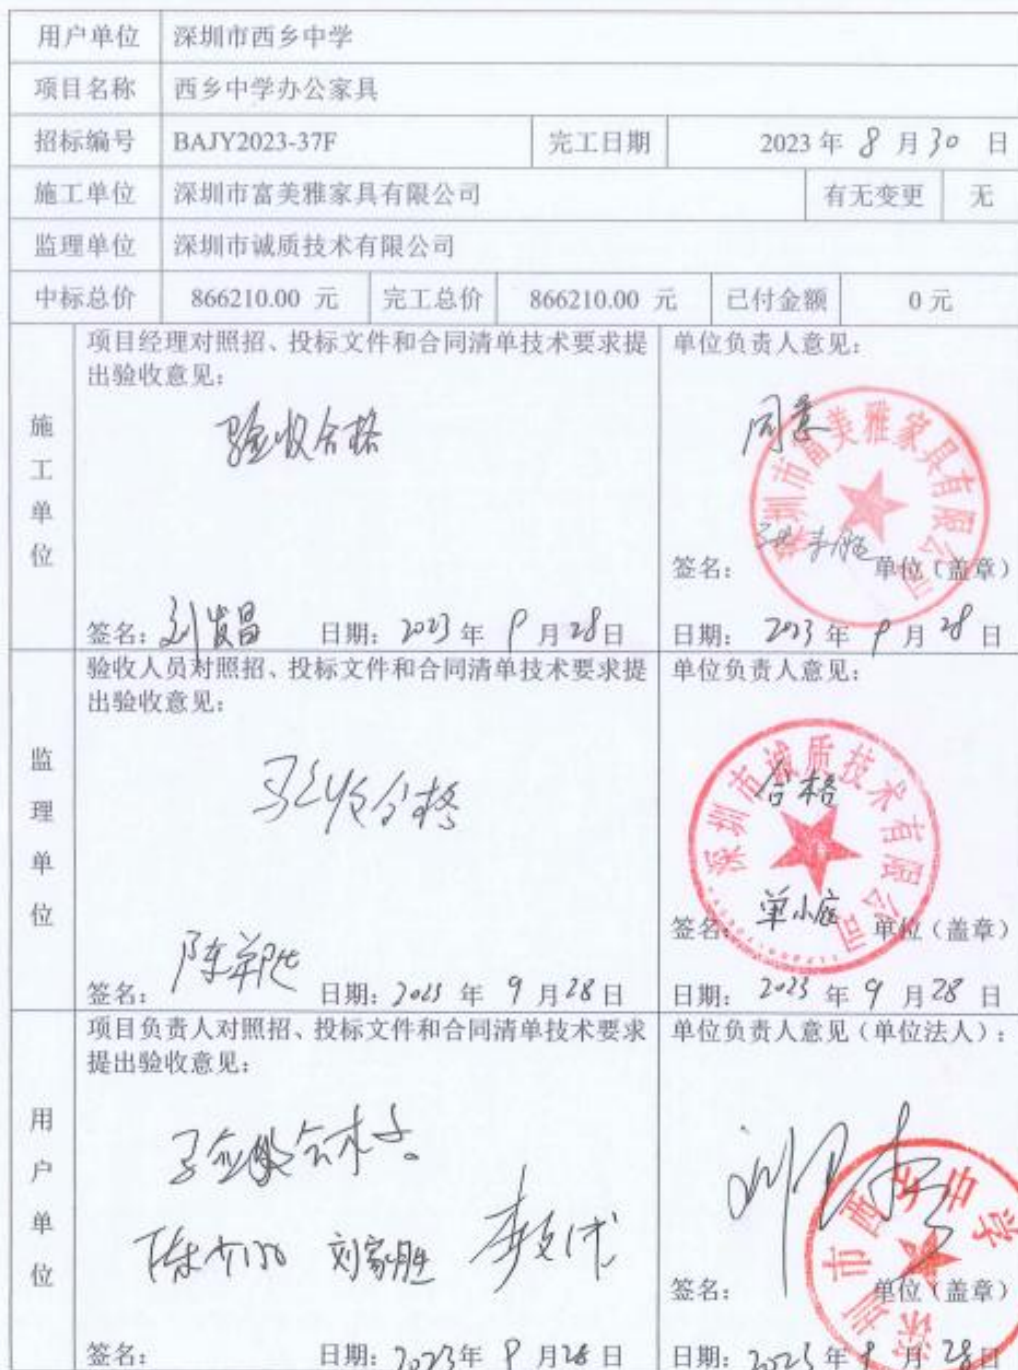 用户单位 深圳市西乡中学
项目名称 西乡中学办公家具
招标编号 BAJY2023-37F 完工日期 2023 年 8 月 30 日
施工单位 深圳市富美雅家具有限公司 有无变更 无
监理单位 深圳市诚质技术有限公司
中标总价 866210.00 元 完工总价 866210.00 元 已付金额 0 元
施工单位
项目经理对照招、投标文件和合同清单技术要求提
出验收意见:
验收合格
签名: 刘发昌 日期: 2023 年 9 月 28 日
单位负责人意见:
同意
深圳市富美雅家具有限公司
签名: 单位(盖章)
日期: 2023 年 9 月 28 日
监理单位
验收人员对照招、投标文件和合同清单技术要求提
出验收意见:
验收合格
签名: 日期: 2023 年 9 月 28 日
单位负责人意见:
合格
深圳市诚质技术有限公司
签名: 单小庭 单位(盖章)
日期: 2023 年 9 月 28 日
用户单位
项目负责人对照招、投标文件和合同清单技术要求
提出验收意见:
验收合格。
刘家胜
签名: 日期: 2023 年 9 月 28 日
单位负责人意见(单位法人):
深圳市西乡中学
签名: 单位(盖章)
日期: 2023 年 9 月 28 日